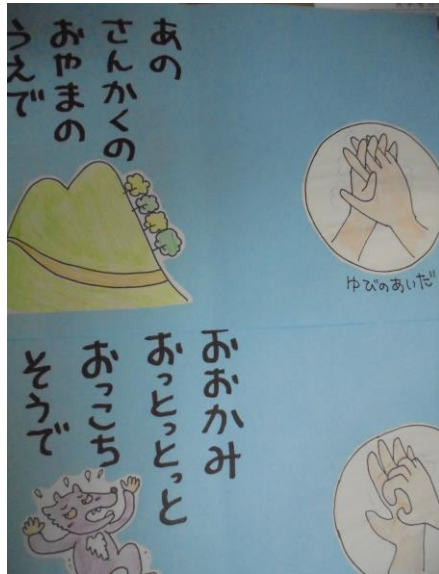 あの
さんかくの
おやまの
うえで
ゆびのあいだ
おおかみ
おっとっとっと
おっこち
そうで